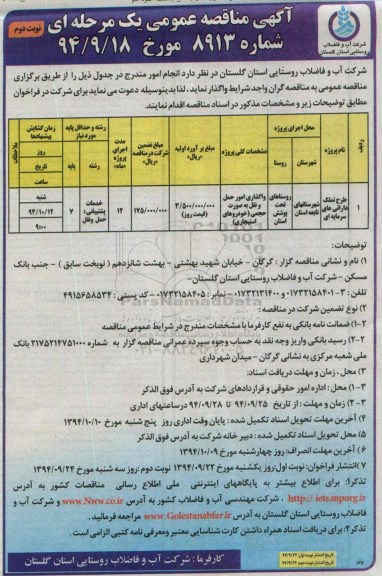 آگهی مناقصه عمومی یک مرحله ای
شماره ۸۹۱۳ مورخ ۹۴/۹/۱۸
نوبت دوم
شرکت آب و فاضلاب
روستایی استان گلستان
شرکت آب و فاضلاب روستایی استان گلستان در نظر دارد انجام امور مندرج در جدول ذیل را از طریق برگزاری
مناقصه عمومی به مناقصه گران واجد شرایط واگذار نماید. لذا بدینوسیله دعوت می نماید برای شرکت در فراخوان
مطابق توضیحات زیر و مشخصات مذکور در اسناد مناقصه اقدام نمایند.
ردیف
نام پروژه
محل اجرای پروژه
شهرستان
روستا
مشخصات کلی پروژه
مبلغ برآورد اولیه «ریال»
مبلغ تضمین شرکت در مناقصه «ریال»
مدت اجرای پروژه «ماه»
رشته و حداقل پایه مورد نیاز
رشته
پایه
زمان گشایش پیشنهادها
روز
تاریخ
ساعت
ملاحظات
۱
طرح تملک دارائی های سرمایه ای
شهرستانهای تابعه استان
روستاهای تحت پوشش استان
واگذاری امور حمل و نقل به صورت حجمی (خودروهای استیجاری)
۳/۵۰۰/۰۰۰/۰۰۰ (قیمت روز)
۱۷۵/۰۰۰/۰۰۰
۱۲
خدمات پشتیبانی: حمل ونقل
۷
شنبه
۹۴/۱۰/۱۲
۹:۰۰
توضیحات:
۱) نام و نشانی مناقصه گزار : گرگان - خیابان شهید بهشتی - بهشت شانزدهم ( نوبخت سابق ) - جنب بانک
مسکن - شرکت آب و فاضلاب روستایی استان گلستان-
تلفن : ۳-۰۱۷۳۲۱۵۸۴۰۱ و ۰۱۷۳۲۱۳۱۴۰۰ - نمابر : ۰۱۷۳۲۱۵۸۴۰۵ - کد پستی : ۴۹۱۵۶۵۸۵۳۴
۲) نوع تضمین شرکت در مناقصه :
۲-۱) ضمانت نامه بانکی به نفع کارفرما با مشخصات مندرج در شرایط عمومی مناقصه
۲-۲) رسید بانکی واریز وجه نقد به حساب وجوه سپرده عمرانی مناقصه گزار به شماره ۲۱۷۵۲۱۴۷۵۱۰۰۰ بانک
ملی شعبه مرکزی به نشانی گرگان - میدان شهرداری
۳) محل ، زمان و مهلت دریافت اسناد:
۳-۱) محل : اداره امور حقوقی و قراردادهای شرکت به آدرس فوق الذکر
۳-۲) زمان و مهلت : از تاریخ ۹۴/۰۹/۲۵ تا ۹۴/۰۹/۲۸ درساعتهای اداری
۴) آخرین مهلت تحویل اسناد تکمیل شده : پایان وقت اداری روز پنج شنبه مورخ ۱۳۹۴/۱۰/۱۰
۵) محل تحویل اسناد تکمیل شده : دبیر خانه شرکت به آدرس فوق الذکر
۶) آخرین مهلت انصراف: روز چهارشنبه مورخ ۱۳۹۴/۱۰/۰۹
۷) انتشار فراخوان: نوبت اول:روز یکشنبه مورخ ۱۳۹۴/۰۹/۲۲ نوبت دوم :روز سه شنبه مورخ ۱۳۹۴/۰۹/۲۴
تذکر۱: برای اطلاع بیشتر به پایگاههای اینترنتی ملی اطلاع رسانی مناقصات کشور به آدرس
http:// iets.mporg.ir ، شرکت مهندسی آب و فاضلاب کشور به آدرس www.Nww.co.ir و شرکت آب و
فاضلاب روستایی استان گلستان به آدرس www.Golestanabfar.ir مراجعه فرمائید .
تذکر۲: برای دریافت اسناد همراه داشتن کارت شناسایی معتبر ومعرفی نامه کتبی الزامی است.
کارفرما : شرکت آب و فاضلاب روستایی استان گلستان
تاریخ انتشار نوبت اول: ۹۴/۹/۲۲
تاریخ انتشار نوبت دوم: ۹۴/۹/۲۴